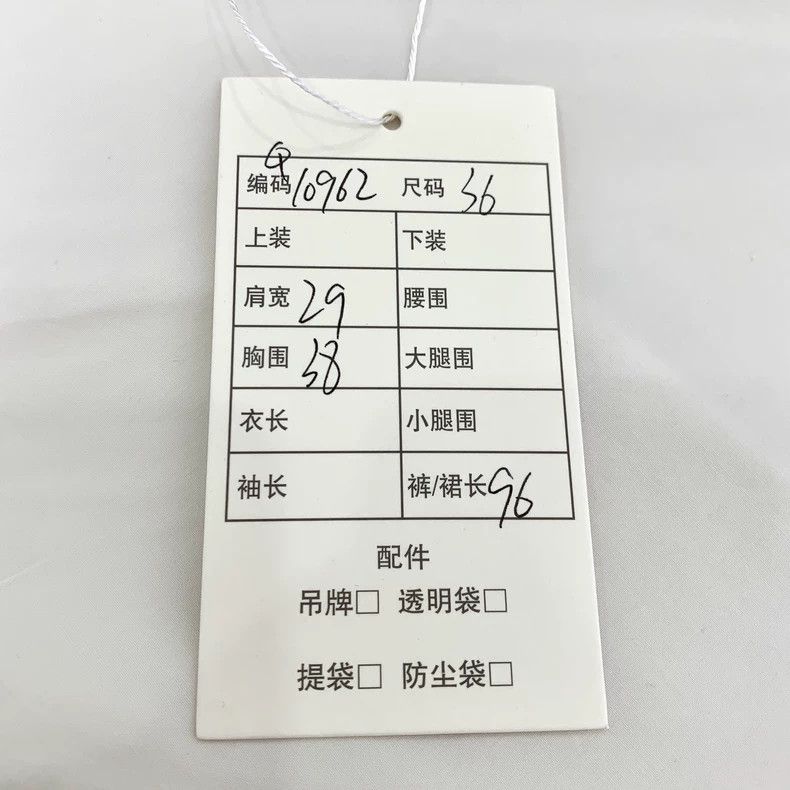 编码Q10962 尺码 36
上装 下装
肩宽 29 腰围
胸围 38 大腿围
衣长 小腿围
袖长 裤/裙长 96
配件
吊牌□ 透明袋□
提袋□ 防尘袋□